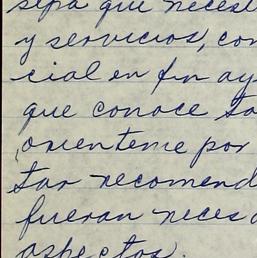 sepa que necesi
y servicios, con
cial en fin ay
que conoce ta
orienteme por
tar recomend
fueran neces
aspectos.